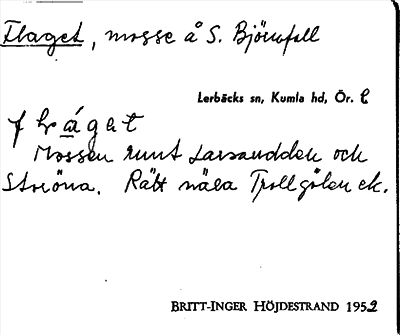 Flaget, mosse å S. Björnfall
Lerbäcks sn, Kumla hd, Ör. l
Mossen runt Larsaudden och
Ströna. Rätt nära Trollgölen ek.
BRITT-INGER HÖJDESTRAND 1952